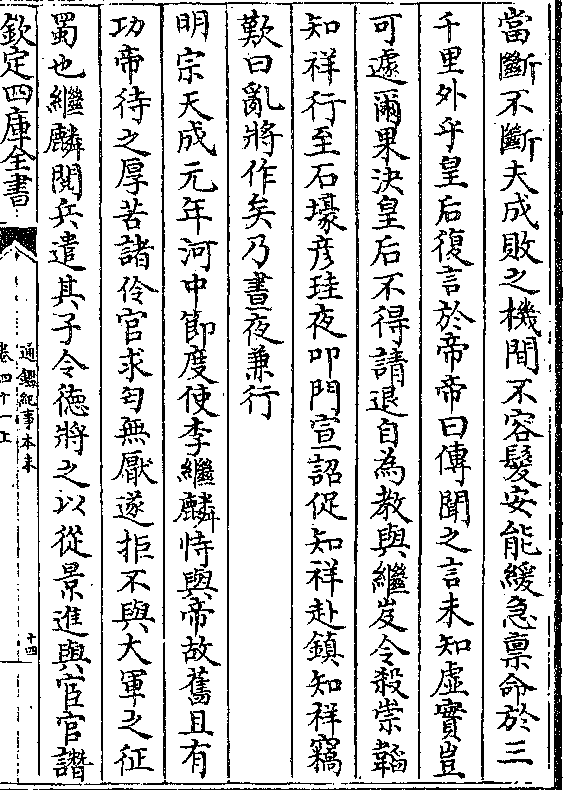 當斷不斷夫成敗之機間不容髮安能緩急禀命於三
千里外乎皇后復言於帝帝曰傳聞之言未知虛實豈
可遽爾果決皇后不得請退自為教與繼岌令殺崇韜
知祥行至石壕彦珪夜叩門宣詔促知祥赴鎮知祥竊
歎曰亂將作矣乃晝夜兼行
明宗天成元年河中節度使李繼麟恃與帝故舊且有
功帝待之厚苦諸伶官求匄無厭遂拒不與大軍之征
蜀也繼麟閱兵遣其子令德將之以從景進與宦官譖
欽定四庫全書
通鑑紀事本末
卷四十一上
十四